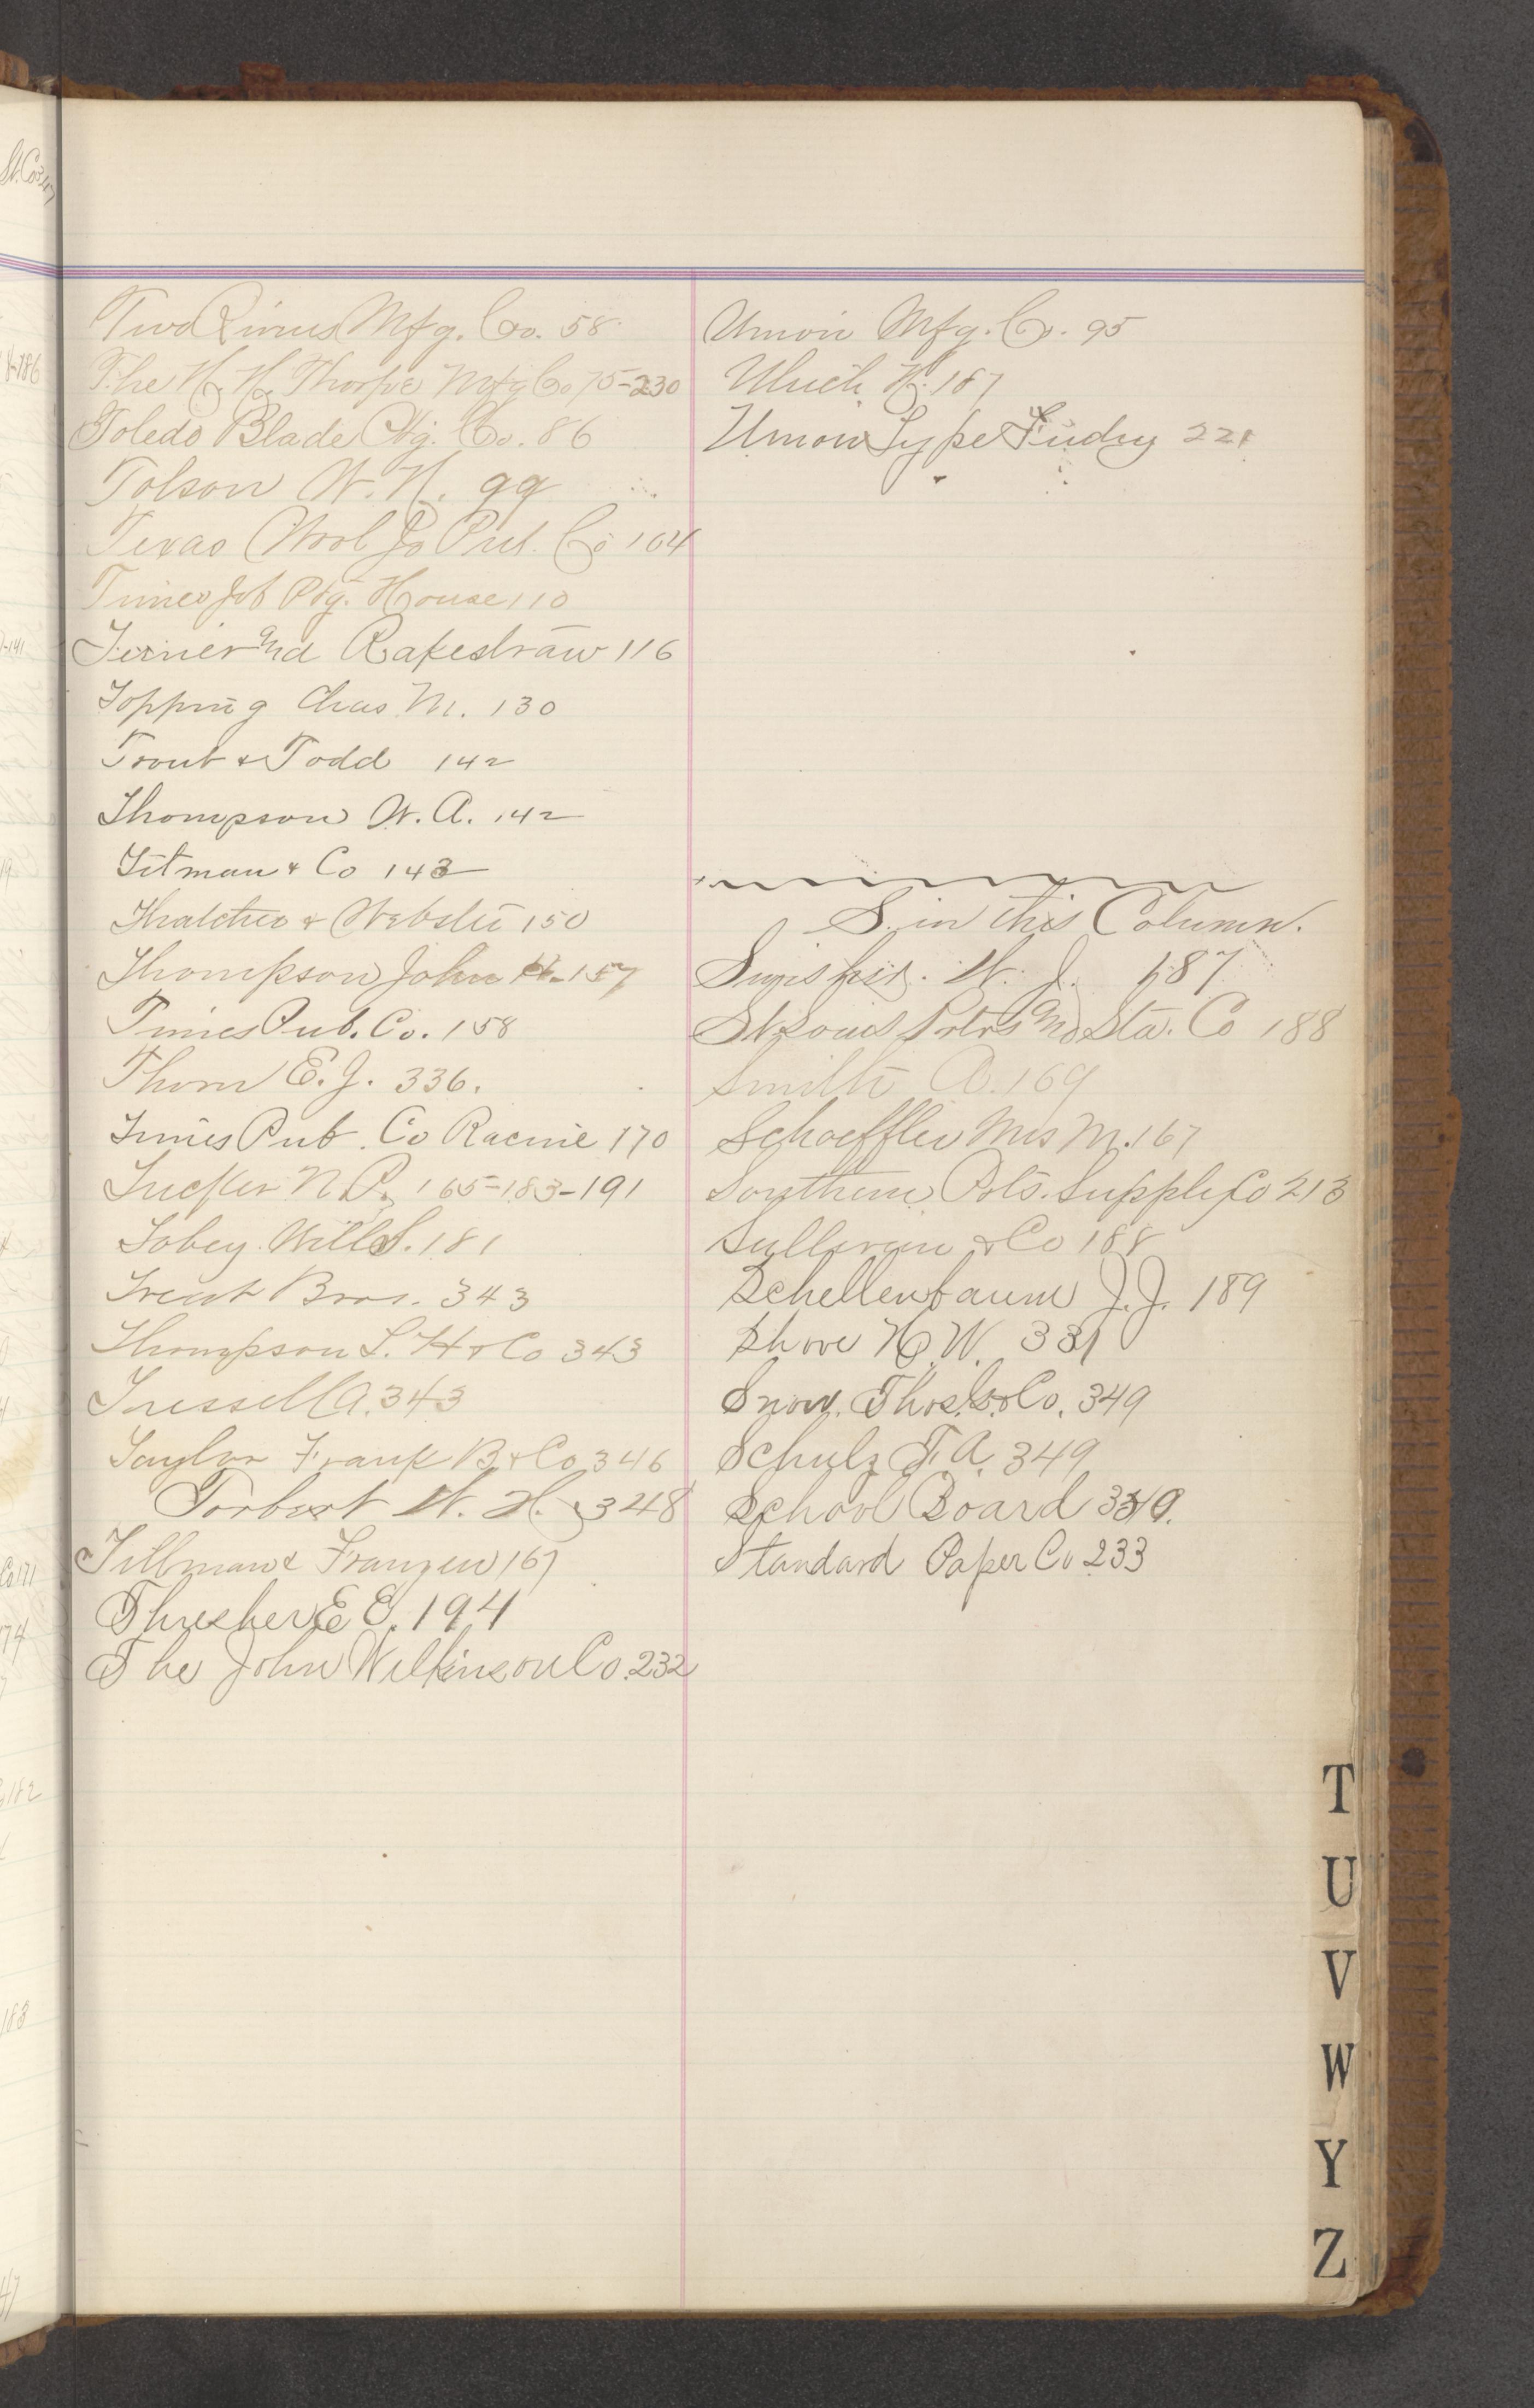 Two Rivers Mfg. Co. 58
The H. H. Thorpe Mfg Co 75-230
Toledo Blade Ptg. Co. 86
Tolson W. H. 99
Texas Wool Jo Pub. Co 104
Times Job Ptg. House 110
Terrier and Rakestraw 116
Topping Chas M. 130
Trout & Todd 142
Thompson W. A. 142
Titman & Co 143
Thatcher & Webster 150
Thompson John H-157
Times Pub. Co. 158
Thorn E. J. 336.
Times Pub. Co Racine 170
Tucker N. P. 165-183-191
Tobey Will S. 181
Treat Bros. 343
Thompson S. H & Co 343
Tressell A. 343
Taylor Frank B & Co 346
Torbert W. H. 348
Tillman & Franzen 167
Thresher E E. 194
The John Wilkinson Co. 232
Union Mfg. Co. 95
Ulrich H. 187
Union Type Fudry 221
S. in this Column.
W. J. 187
St Louis Prtrs and Sta. Co 188
Smith A. 169
Schaeffler Mrs M. 167
Southern Pots. Supply Co 213
Sullivan & Co 188
Schellenbaum J. J. 189
Shove H. W. 331
Snow. Thos. & Co. 349
Schulz F. A. 349
School Board
Standard Paper Co 233
T
U
V
W
Y
Z